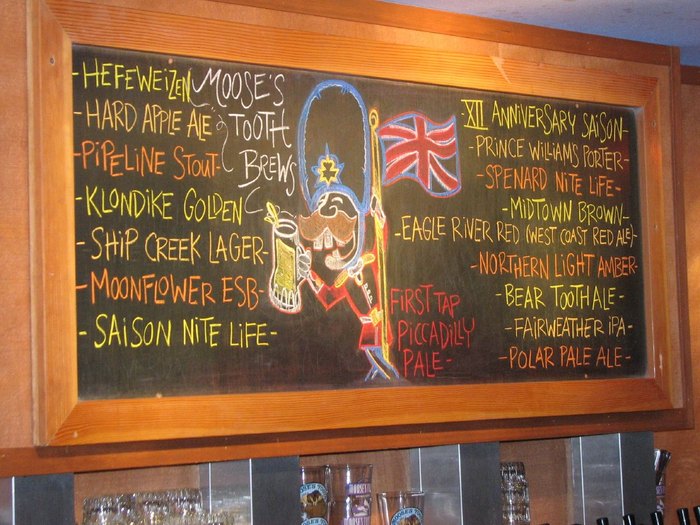 -HEFEWEIZEN
-HARD APPLE ALE
-PIPELINE STOUT-
-KLONDIKE GOLDEN
-SHIP CREEK LAGER-
-MOONFLOWER ESB-
-SAISON NITE LIFE-
MOOSE'S
TOOTH
BREWS
FIRST TAP
PICCADILLY
PALE-
XII ANNIVERSARY SAISON-
-PRINCE WILLIAMS PORTER-
-SPENARD NITE LIFE-
-MIDTOWN BROWN-
-EAGLE RIVER RED (WEST COAST RED ALE)-
-NORTHERN LIGHT AMBER-
-BEAR TOOTH ALE-
-FAIRWEATHER IPA-
-POLAR PALE ALE-